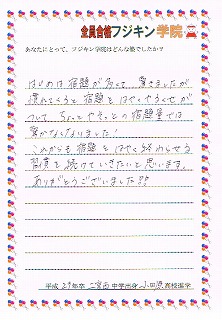 全員合格フジキン学院
あなたにとって、フジキン学院はどんな塾でしたか？
はじめは宿題が多くて、驚きましたが
慣れてくると宿題をはやくやるくせが
ついて、ちょっとやそっとの宿題量では
驚かなくなりました！
これからも宿題をはやく終わらせる
習慣を続けていきたいと思います。
ありがとうございました!!
平成29年卒 二宮西中学出身 小田原高校進学